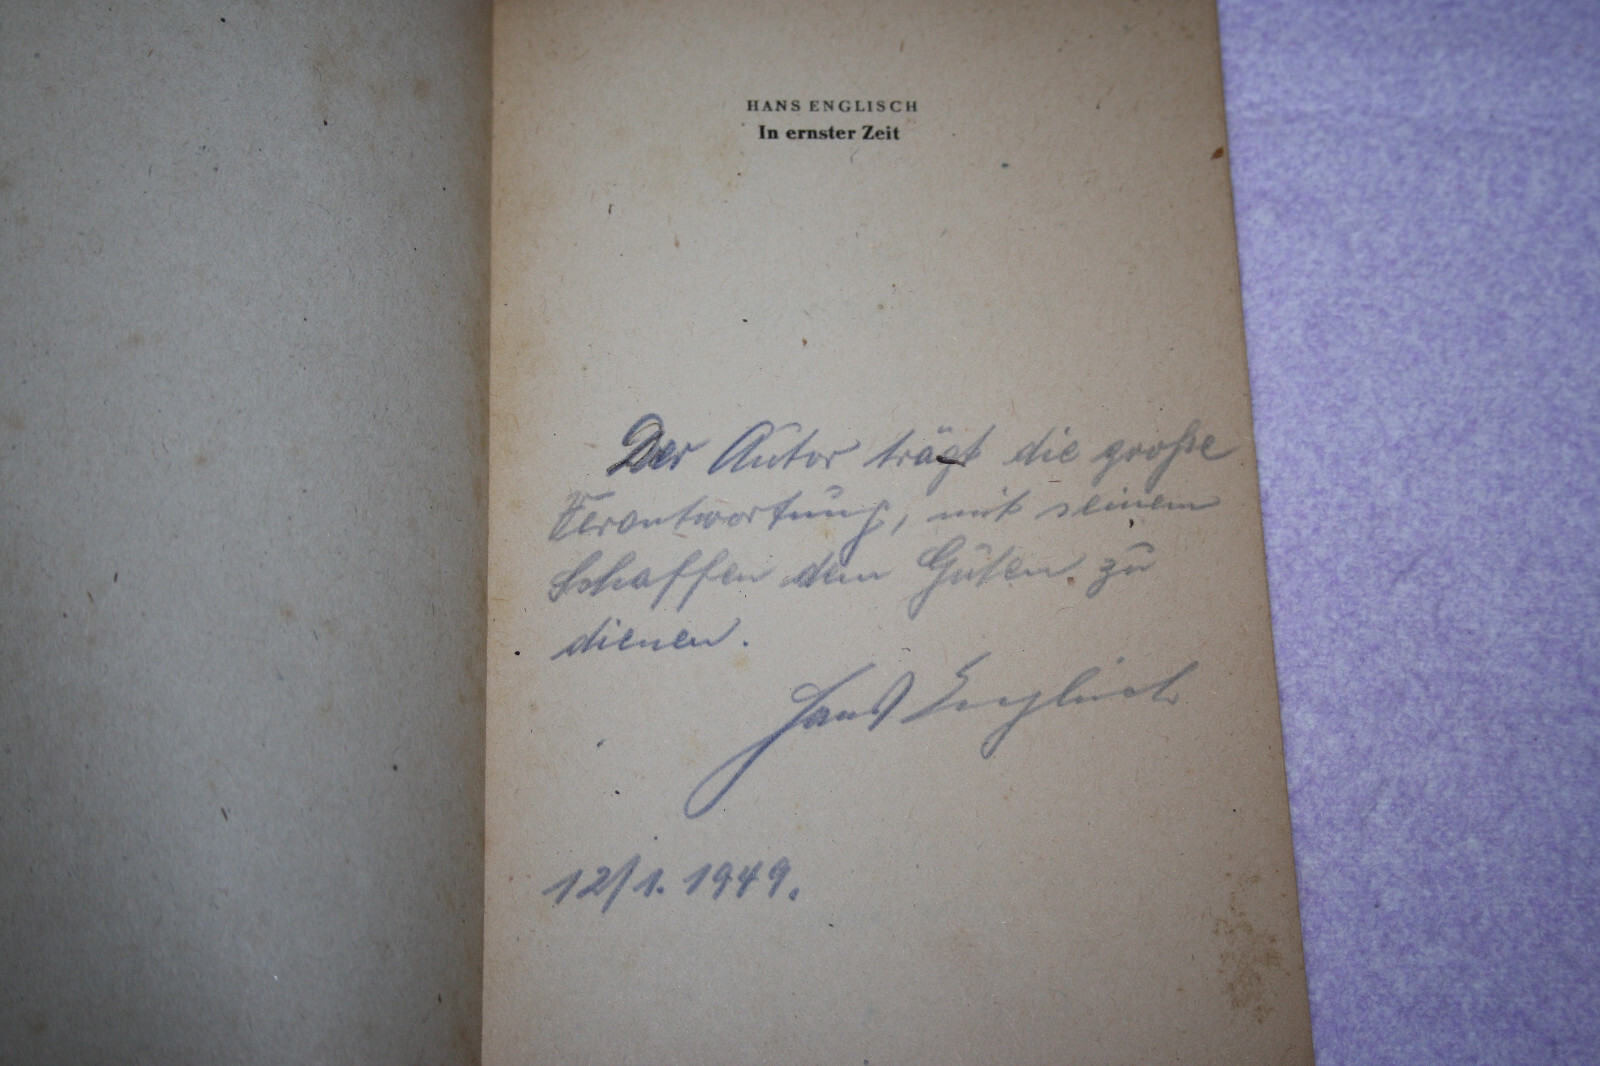 HANS ENGLISCH
In ernster Zeit
Der Autor trägt die große
Verantwortung, mit seinem
Schaffen dem Guten zu
dienen.
Hans Englisch
12/1. 1949.